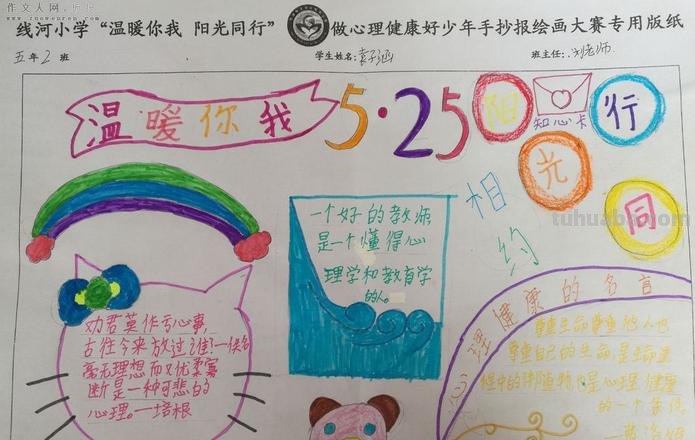 作文人网
www.zuowenren.com
线河小学“温暖你我 阳光同行” 做心理健康好少年手抄报绘画大赛专用版纸
五年2班 学生姓名: 班主任: 刘老师
温暖你我 5·25 阳光同行
知心卡
相约
tuhuabao.com
一个好的教师
是一个懂得心
理学和教育学
的人。
心理健康的名言
劝君莫作亏心事,
古往今来放过谁?一佚名
毫无理想而又优柔寡
断是一种可悲的
心理。一培根
尊重生命尊重他人也
尊重自己的生命,是生命进
程中的伴随物,也是心理健康
的一个条件